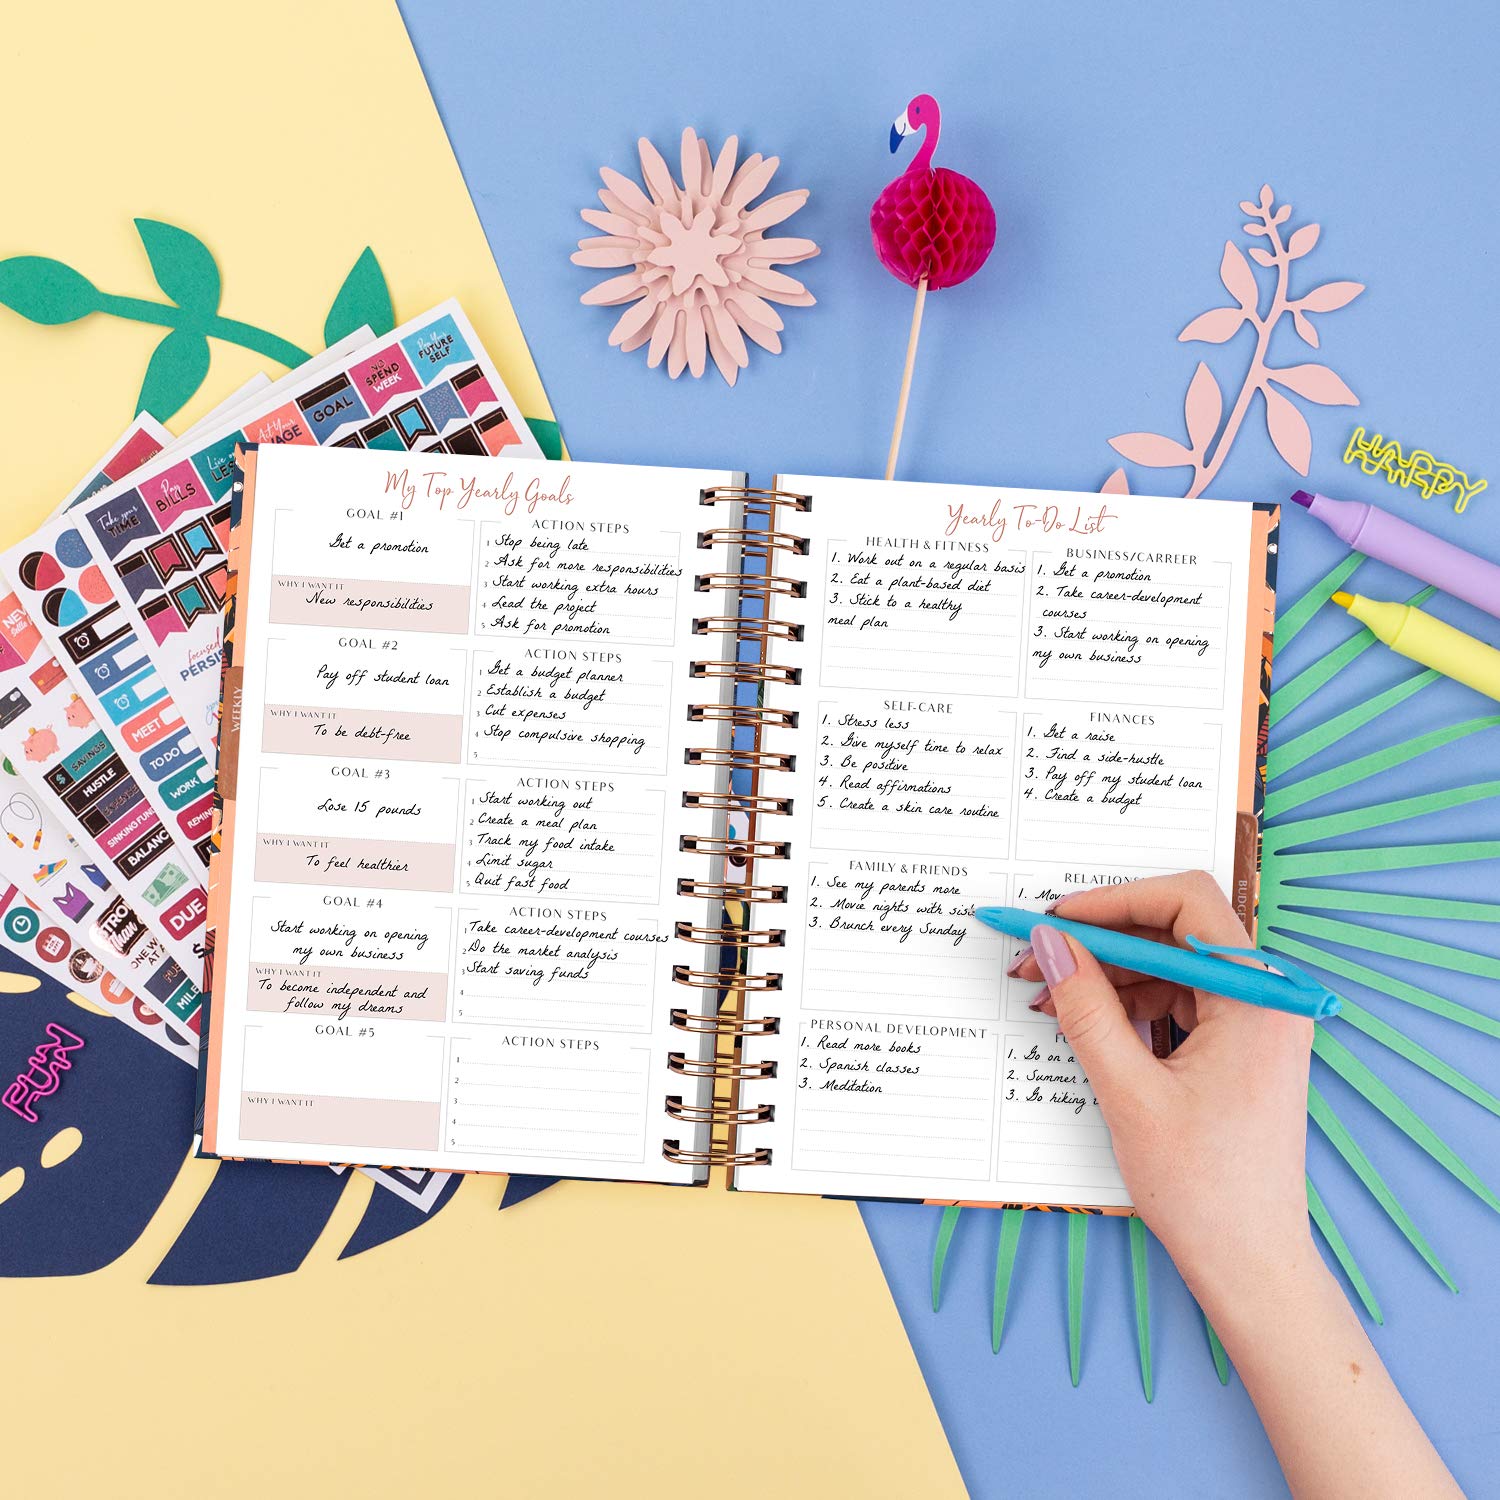 Pay Your
FUTURE
SELF
NO
SPEND
WEEK
GOAL
Pay
BILLS
Take your
TIME
focused
MEET
TO DO
WORK
SAVINGS
HUSTLE
EXPENSE
DUE
FUN
HAPPY
WEEKLY
My Top Yearly Goals
GOAL #1
Get a promotion
WHY I WANT IT
New responsibilities
ACTION STEPS
1 Stop being late
2 Ask for more responsibilities
3 Start working extra hours
4 Lead the project
5 Ask for promotion
GOAL #2
Pay off student loan
WHY I WANT IT
To be debt-free
ACTION STEPS
1 Get a budget planner
2 Establish a budget
3 Cut expenses
4 Stop compulsive shopping
5
GOAL #3
Lose 15 pounds
WHY I WANT IT
To feel healthier
ACTION STEPS
1 Start working out
2 Create a meal plan
3 Track my food intake
4 Limit sugar
5 Quit fast food
GOAL #4
Start working on opening
my own business
WHY I WANT IT
To become independent and
follow my dreams
ACTION STEPS
1 Take career-development courses
2 Do the market analysis
3 Start saving funds
4
5
GOAL #5
WHY I WANT IT
ACTION STEPS
1
2
3
4
5
Yearly To-Do List
HEALTH & FITNESS
1. Work out on a regular basis
2. Eat a plant-based diet
3. Stick to a healthy
meal plan
BUSINESS/CARREER
1. Get a promotion
2. Take career-development
courses
3. Start working on opening
my own business
SELF-CARE
1. Stress less
2. Give myself time to relax
3. Be positive
4. Read affirmations
5. Create a skin care routine
FINANCES
1. Get a raise
2. Find a side-hustle
3. Pay off my student loan
4. Create a budget
FAMILY & FRIENDS
1. See my parents more
2. Movie nights with
3. Brunch every Sunday
1.
PERSONAL DEVELOPMENT
1. Read more books
2. Spanish classes
3. Meditation
1. Go on a
2. Summer
3. Go hiking